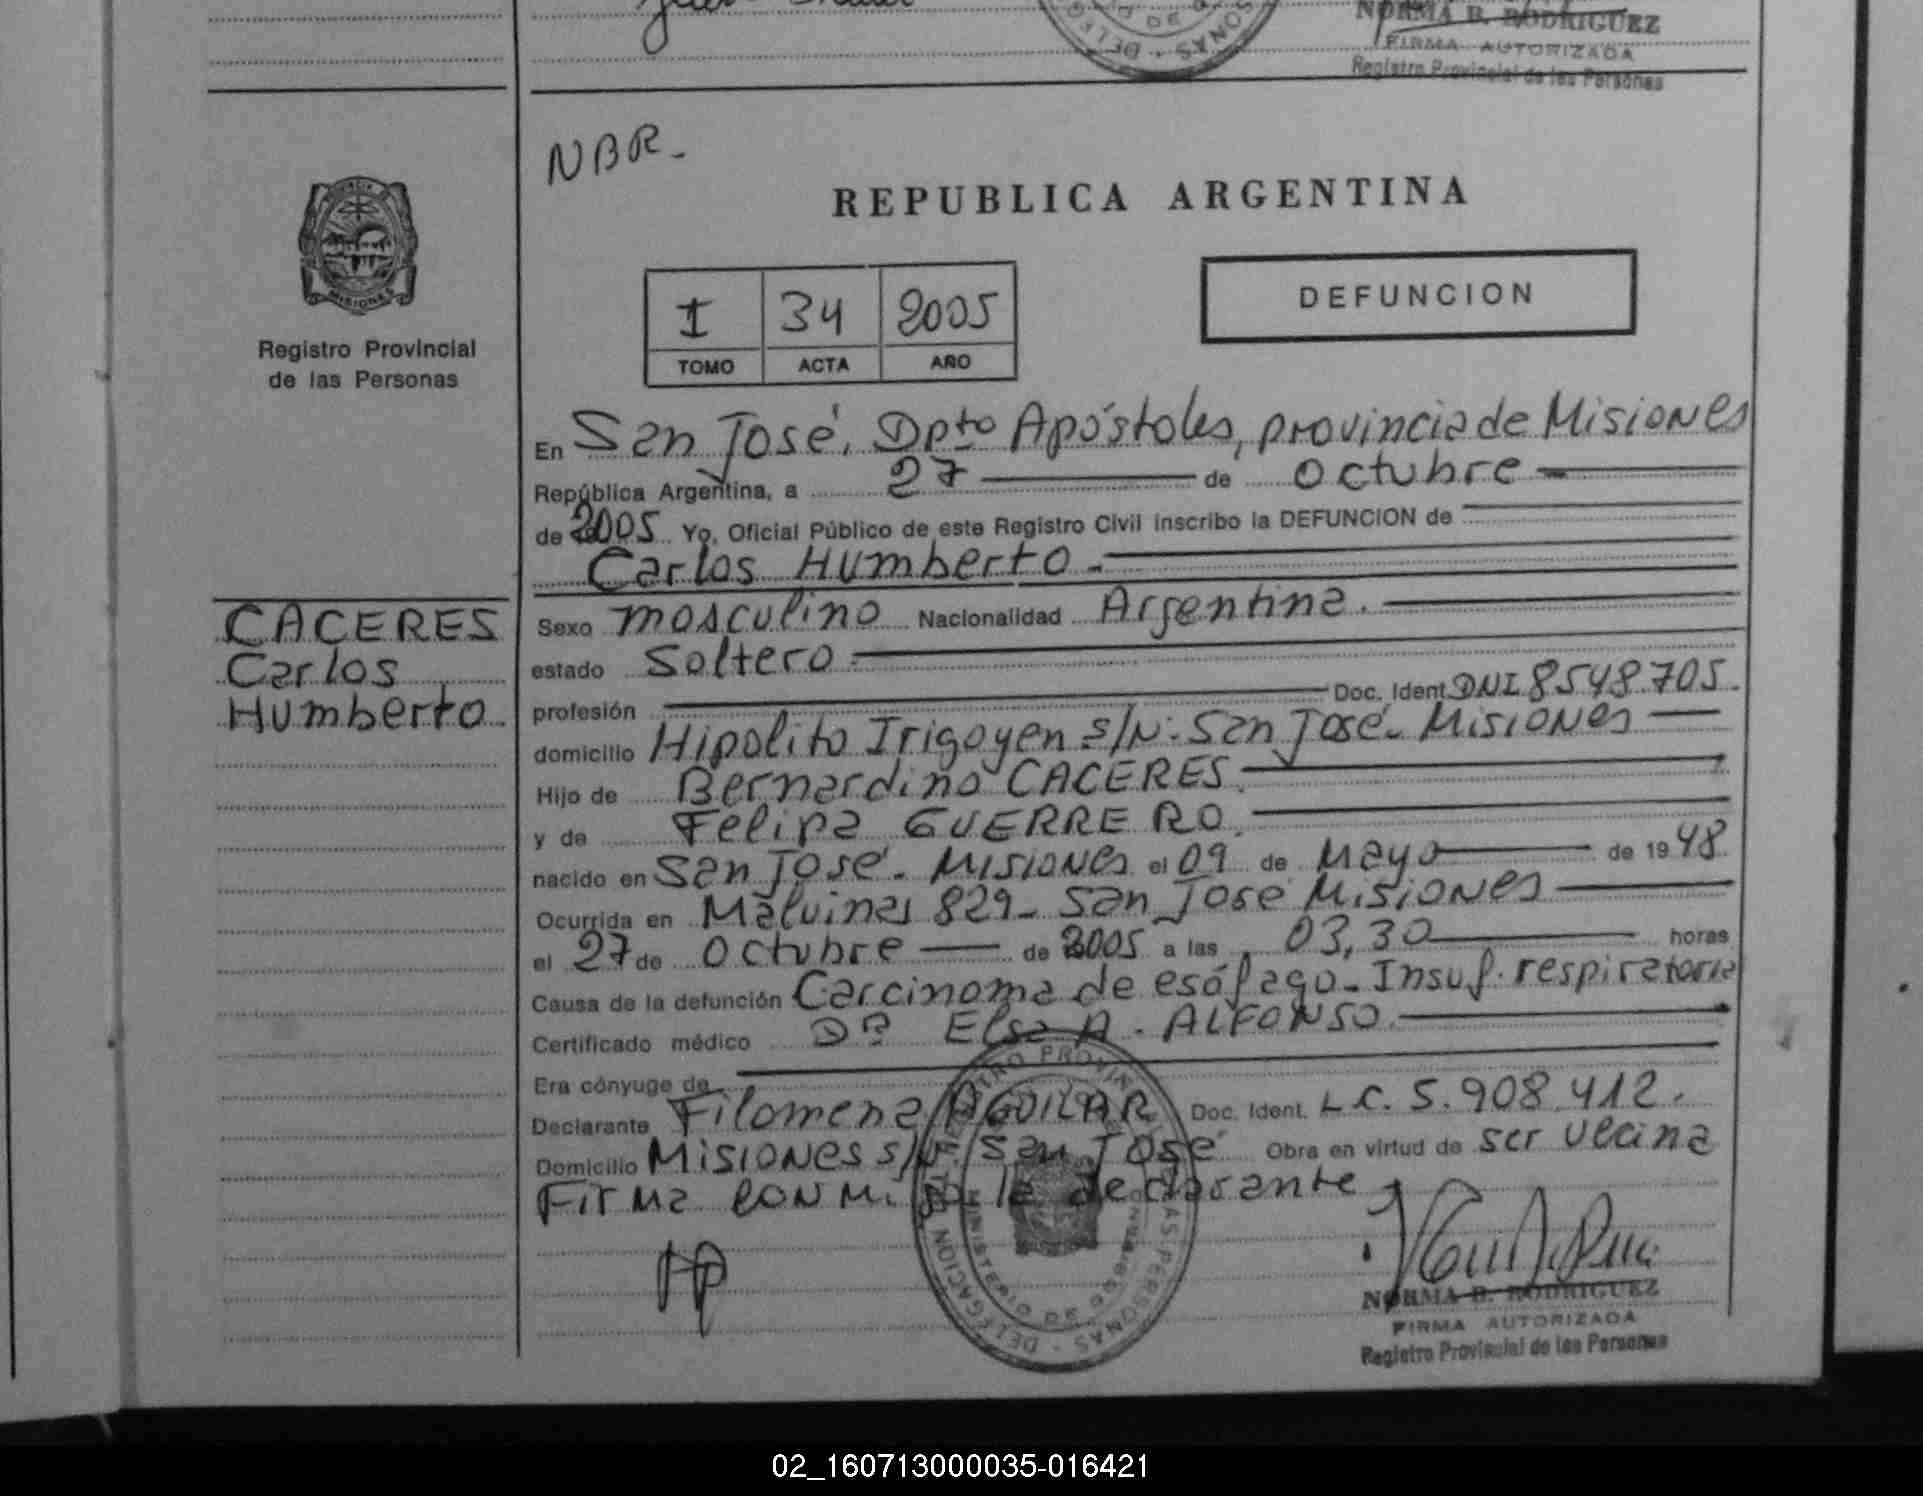 NORMA B. RODRIGUEZ
FIRMA AUTORIZADA
Registro Provincial de las Personas
NBR-
REPUBLICA ARGENTINA
DEFUNCION
I 34 2005
TOMO ACTA AÑO
MISIONES
Registro Provincial
de las Personas
En San José, Dpto Apóstoles, provincia de Misiones
República Argentina, a 27 de Octubre
de 2005 Yo, Oficial Público de este Registro Civil inscribo la DEFUNCION de
Carlos Humberto.
CACERES
Carlos
Humberto
Sexo masculino Nacionalidad Argentina.
estado Soltero
profesión Doc. Ident DNI 8548705.
domicilio Hipolito Irigoyen s/N: San José- Misiones
Hijo de Bernardino CACERES.
y de Felipa GUERRERO.
nacido en San José- Misiones el 09 de Mayo de 1948
Ocurrida en Malvinas 829- San José Misiones
el 27 de Octubre de 2005 a las 03,30 horas
Causa de la defunción Carcinoma de esófago- Insuf. respiratoria
Certificado médico Dra Elsa A. ALFONSO.
Era cónyuge de
Declarante Filomena AGUILAR Doc. Ident. L.C. 5.908.412.
Domicilio Misiones s/N. San José Obra en virtud de ser vecina
Firma con migo la declarante
NORMA B. RODRIGUEZ
FIRMA AUTORIZADA
Registro Provincial de las Personas
02_160713000035-016421